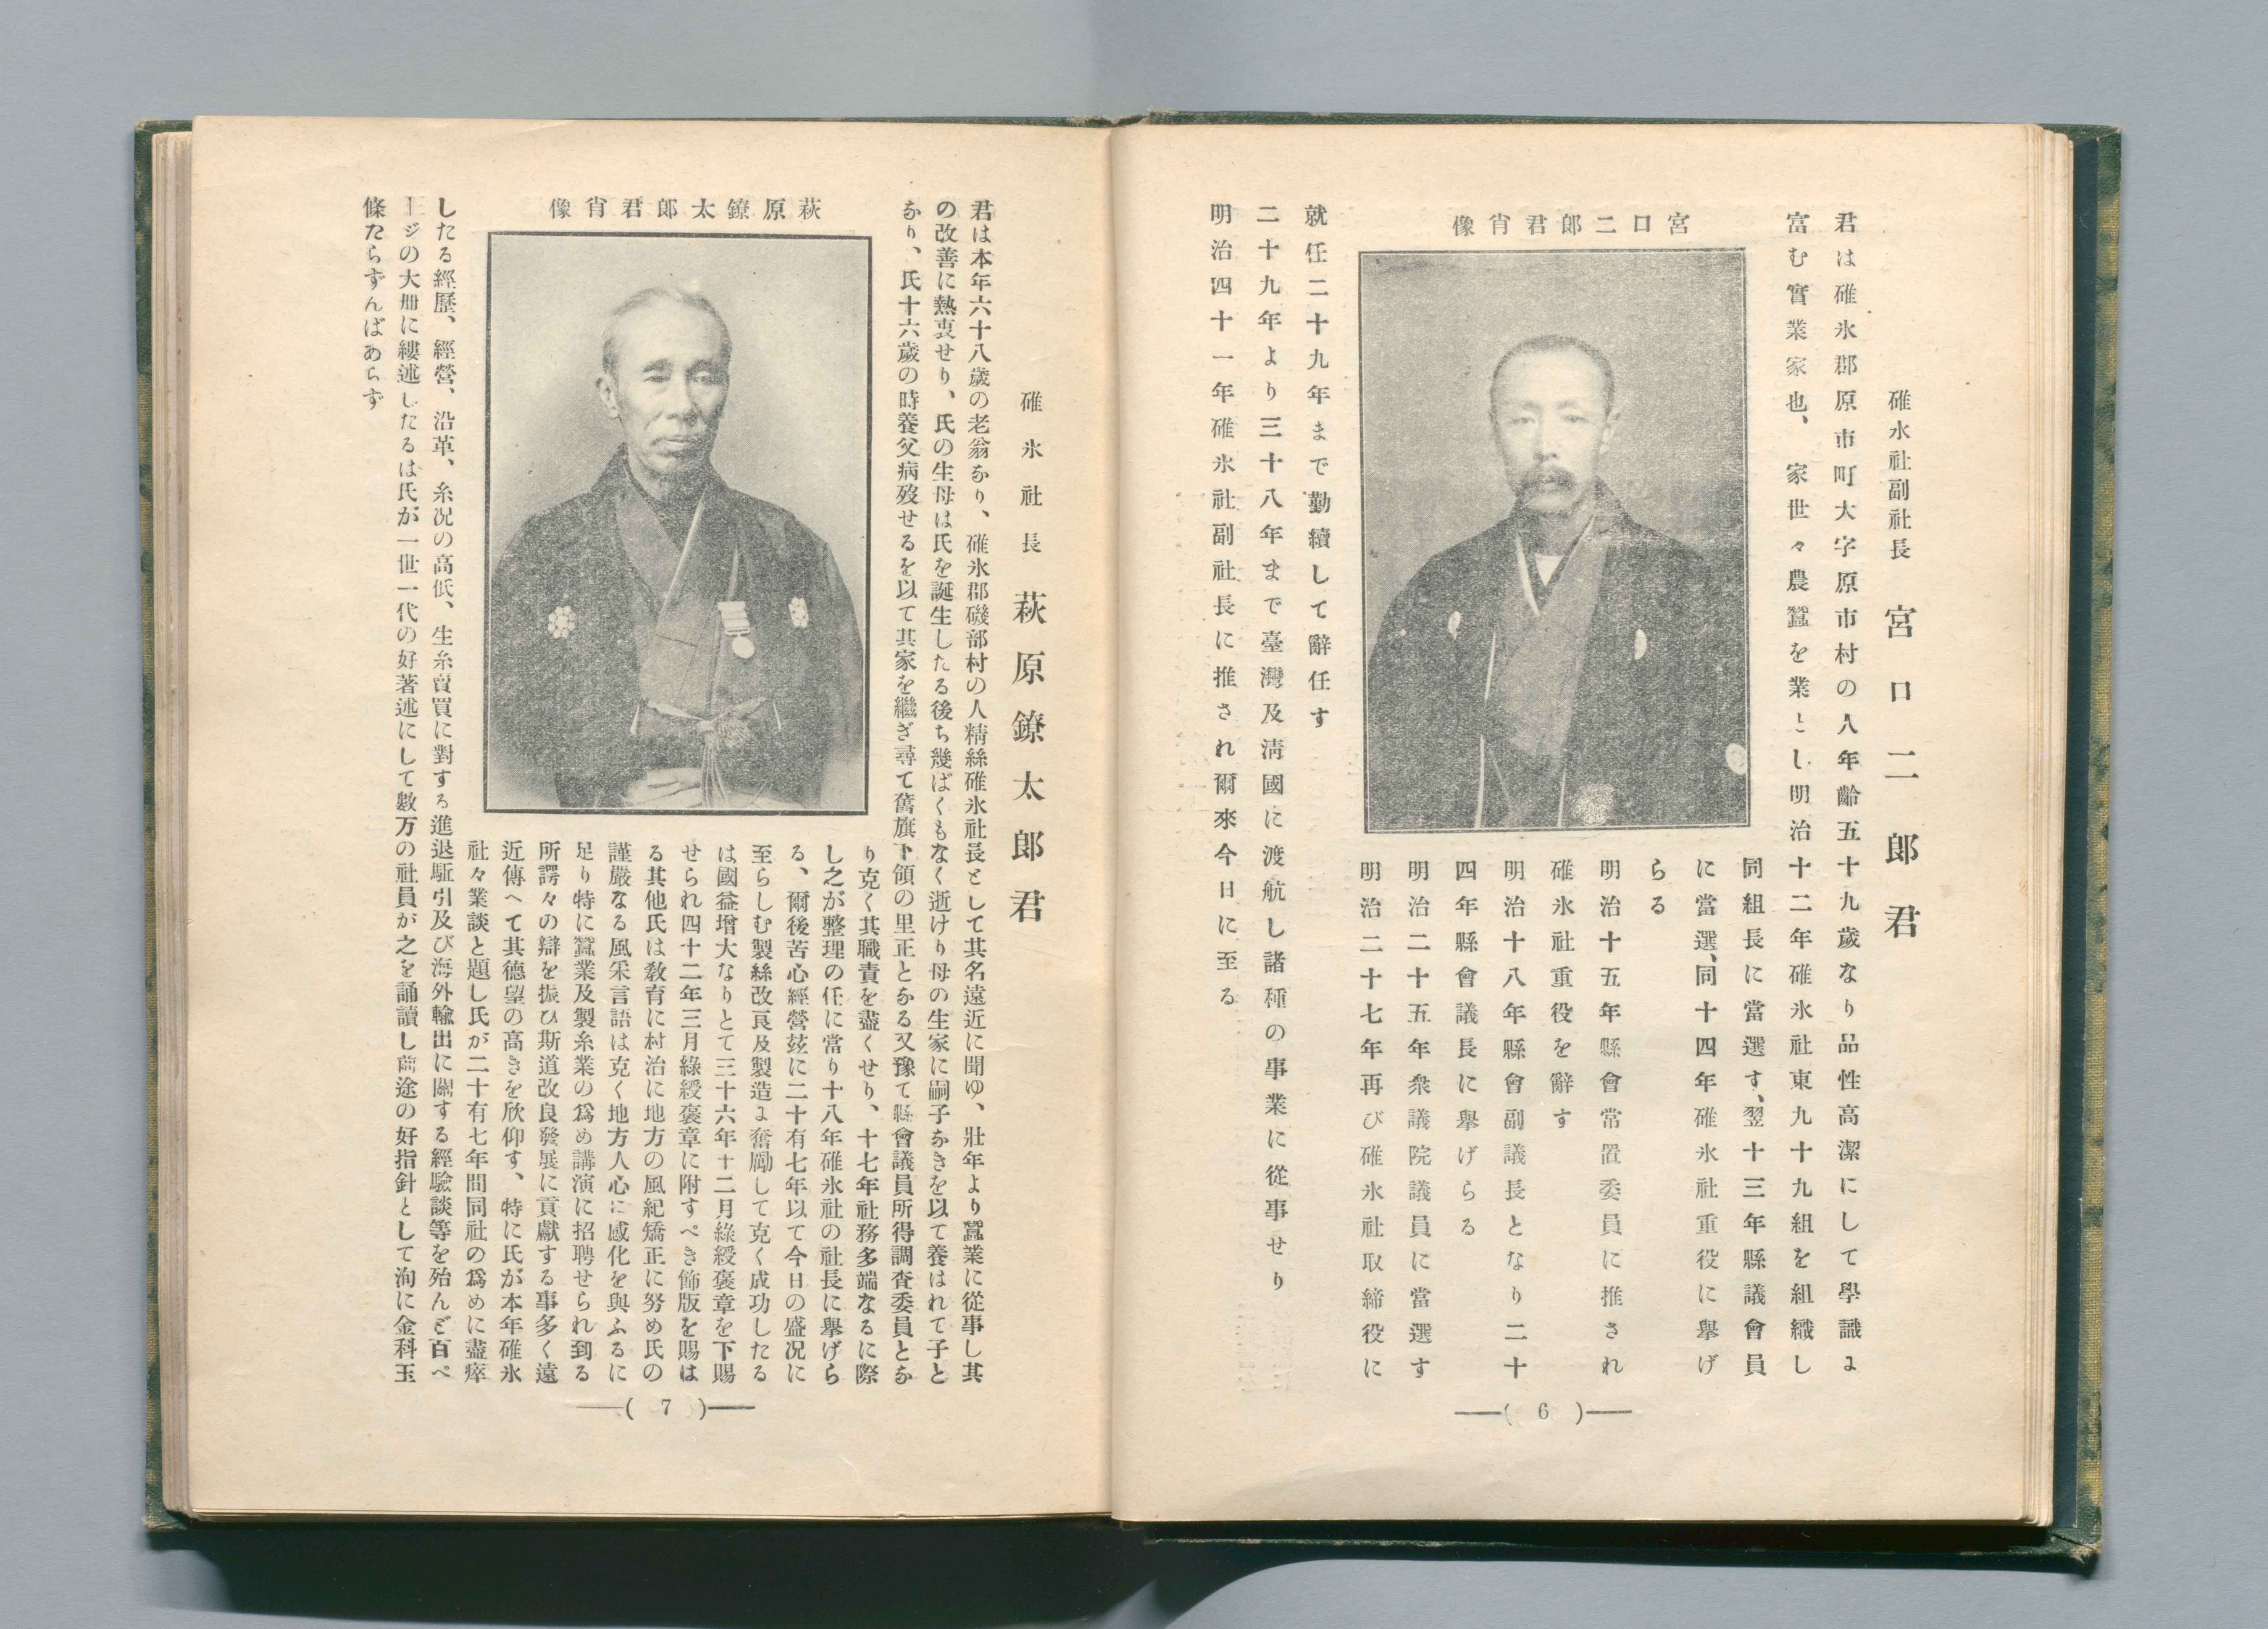 碓氷社副社長 宮口二郎君
君は碓氷郡原市町大字原市村の人年齡五十九歲なり品性高潔にして學識ょ
富む實業家也、家世々農蠶を業とし明治十二年碓氷社東九十九組を組織し
宮口二郎君肖像
同組長に當選す、翌十三年縣議會員
に當選、同十四年碓氷社重役に擧げ
らる
明治十五年縣會常置委員に推され
碓氷社重役を辭す
明治十八年縣會副議長となり二十
四年縣會議長に擧げらる
明治二十五年衆議院議員に當選す
明治二十七年再び碓氷社取締役に
就任二十九年まで勤續して辭任す
二十九年より三十八年まで臺灣及淸國に渡航し諸種の事業に從事せり
明治四十一年碓氷社副社長に推され爾來今日に至る
( 6 )
碓氷社長 萩原鐐太郎君
君は本年六十八歲の老翁なり、碓氷郡磯部村の人精絲碓氷社長として其名遠近に聞ゆ、壯年より蠶業に從事し其
の改善に熱衷せり、氏の生母は氏を誕生したる後ち幾ばくもなく逝けり母の生家に嗣子なきを以て養はれて子と
なり、氏十六歲の時養父病歿せるを以て其家を繼ぎ尋て舊旗下領の里正となる又豫て縣會議員所得調査委員とな
萩原鐐太郎君肖像
り克く其職責を盡くせり、十七年社務多端なるに際
し之が整理の任に當り十八年碓氷社の社長に擧げら
る、爾後苦心經營玆に二十有七年以て今日の盛況に
至らしむ製絲改良及製造ょ奮勵して克く成功したる
は國益增大なりとて三十六年十二月綠綬褒章を下賜
せられ四十二年三月綠綬褒章に附すべき飾版を賜は
る其他氏は敎育に村治に地方の風紀矯正に努め氏の
謹嚴なる風采言語は克く地方人心に感化を與ふるに
足り特に蠶業及製糸業の爲め講演に招聘せられ到る
所諤々の辯を振ひ斯道改良發展に貢獻する事多く遠
近傳へて其德望の高きを欣仰す、特に氏が本年碓氷
社々業談と題し氏が二十有七年間同社の爲めに盡瘁
したる經歷、經營、沿革、糸況の高低、生糸賣買に對する進退駈引及び海外輸出に關する經驗談等を殆んど百ペ
ージの大冊に縷述したるは氏が一世一代の好著述にして數万の社員が之を誦讀し前途の好指針として洵に金科玉
條たらずんばあらず
( 7 )